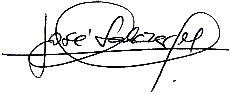 José Salazar M